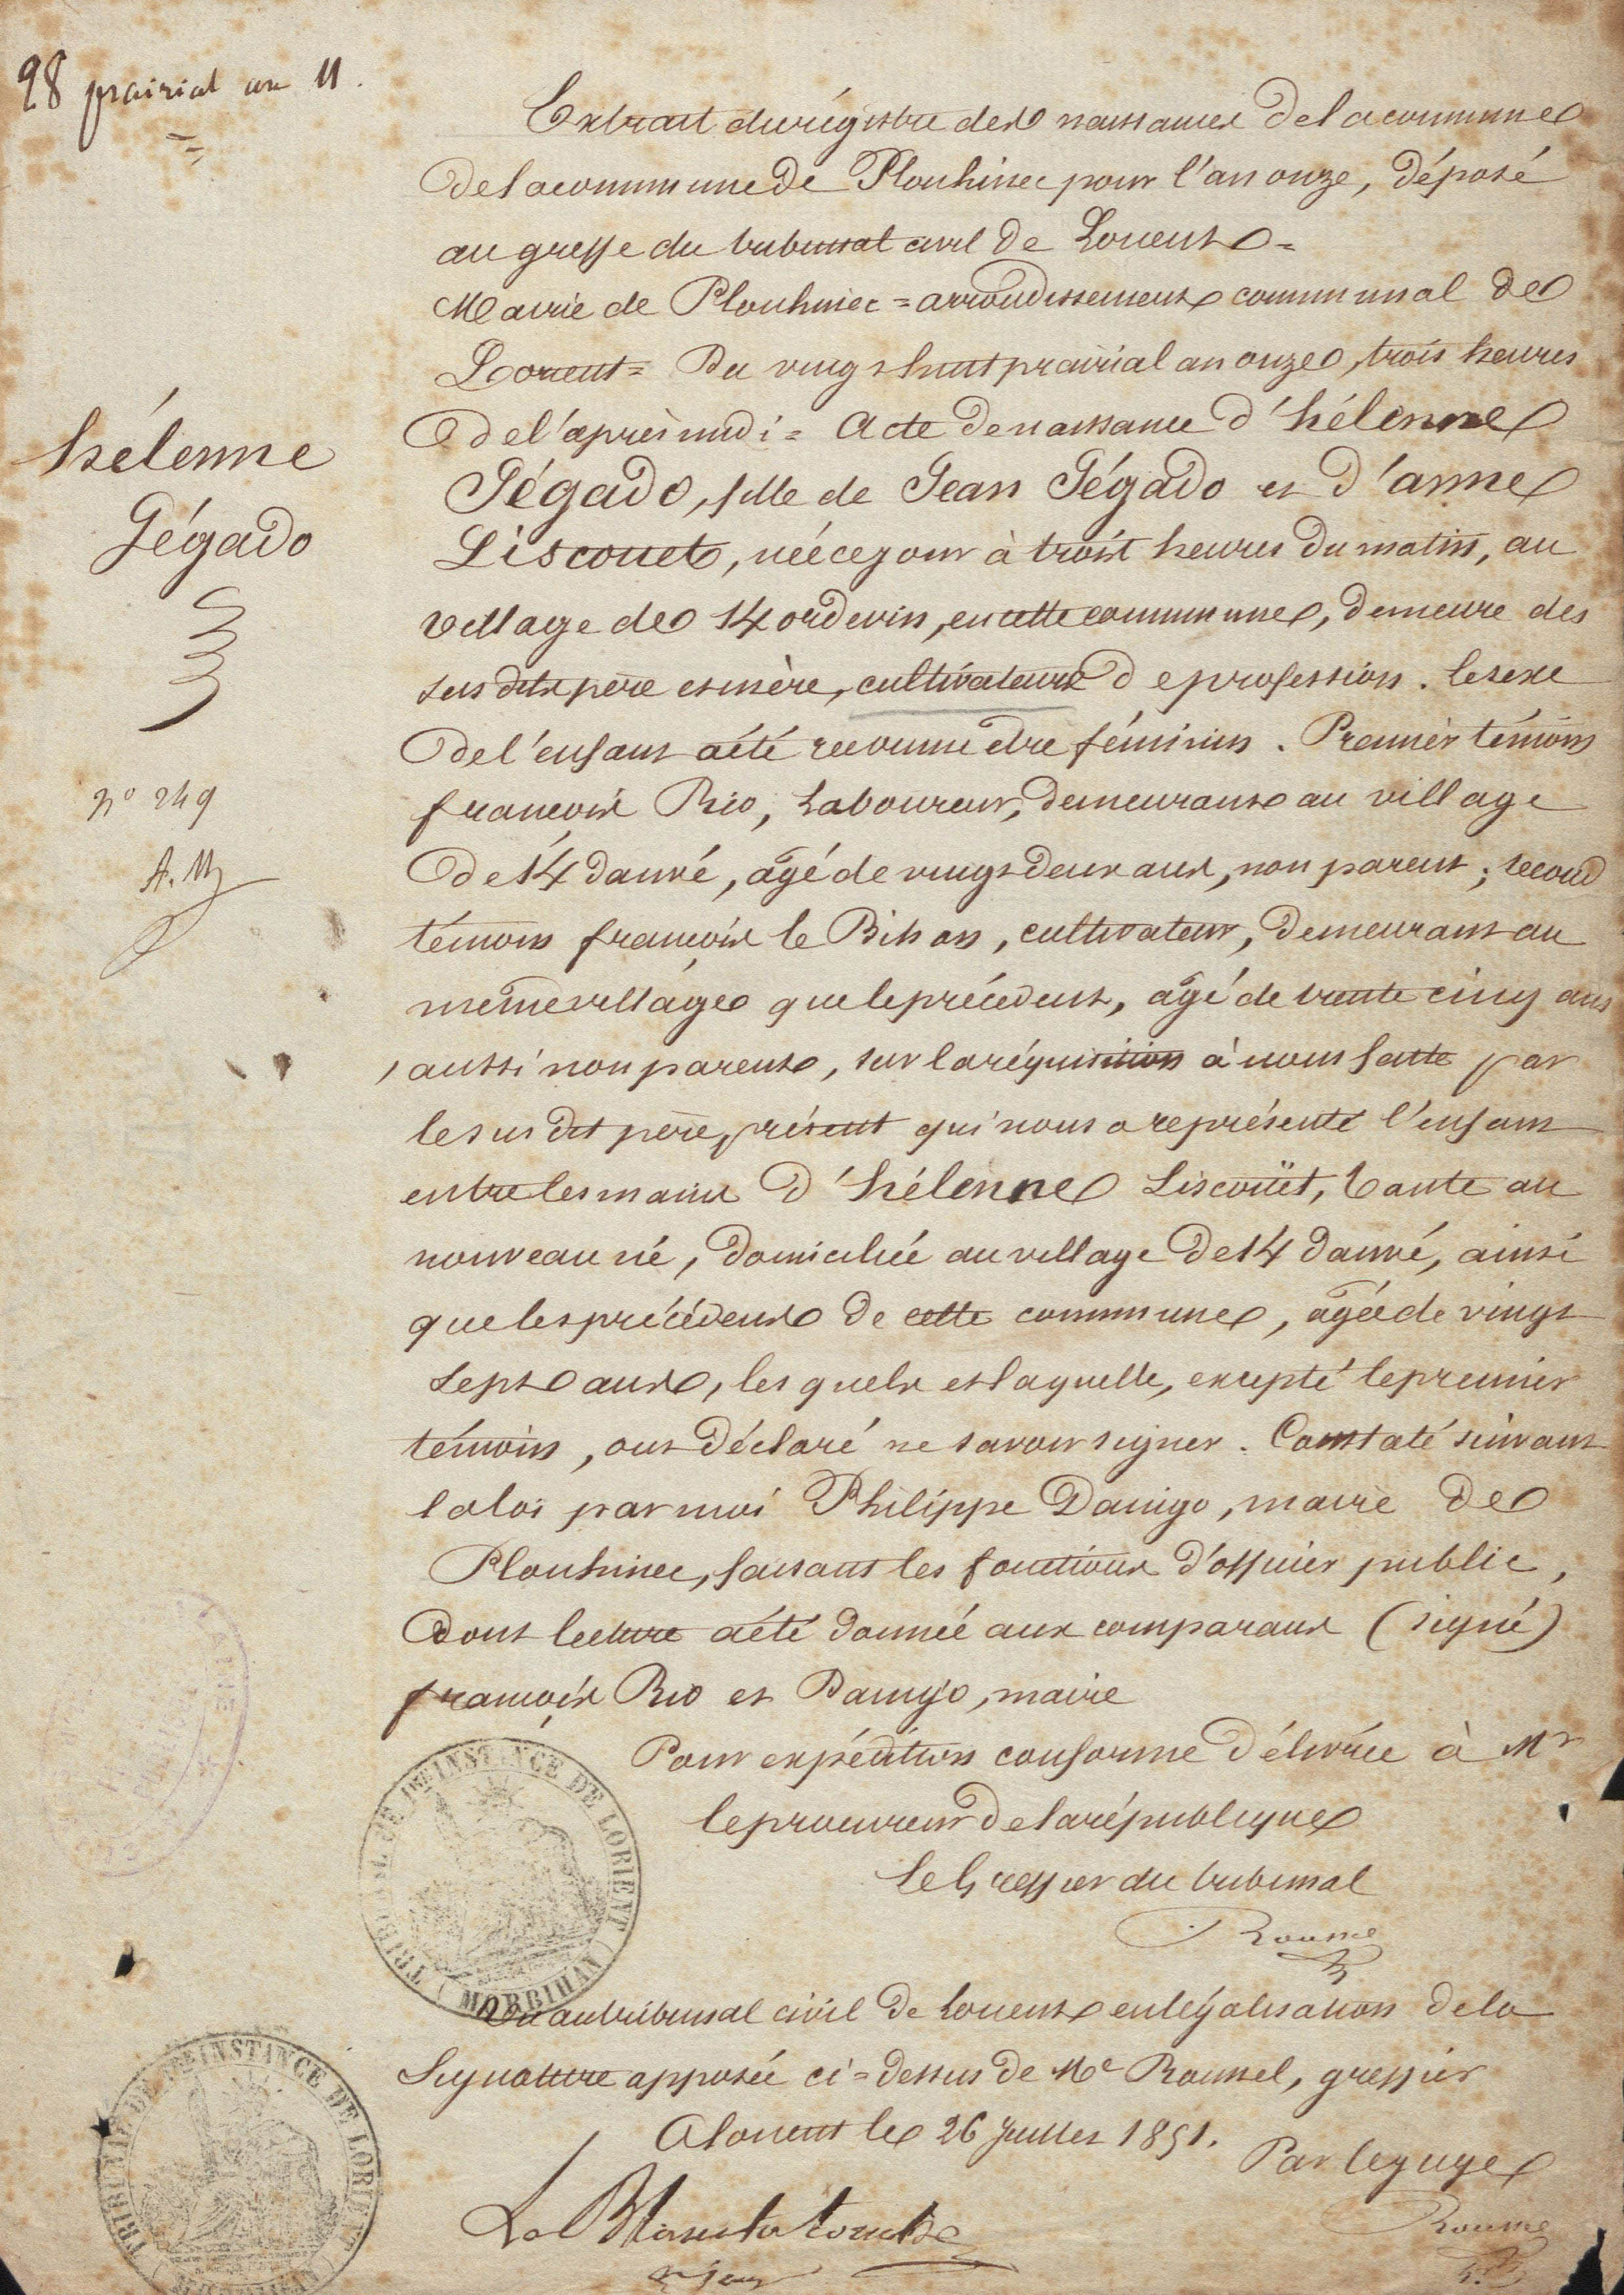 28 prairial an 11.
Extrait du régistre des naissances de la commune
de la commune de Plouhinec pour l'an onze, déposé
au greffe du tribunal civil de Lorient =
Mairie de Plouhinec = arrondissement communal de
Lorient = Du vingt huit prairial an onze, trois heures
de l'après midi = Acte de naissance d'hélenne
Jégado, fille de Jean Jégado et d'anne
Liscouet, née ce jour à trois heures du matin, au
village de Kordevin, en cette commune, demeure des
susdits père et mère, cultivateurs de profession. le sexe
de l'enfant a été reconnu etre féminin. Premier témoin
françois Rio, Laboureur, demeurant au village
de Kdanvé, âgé de vingt deux ans, non parent ; second
témoin françois le Bihan, cultivateur, demeurant au
même village que le précédent, âgé de trente cinq ans
, aussi non parent, sur la réquisition à nous faite par
le susdit père, présent qui nous a représenté l'enfant
entre les mains d'hélenne Liscouët, tante au
nouveau né, domiciliée au village de Kdanvé, ainsi
que les précédents de cette commune, agée de vingt
sept ans, les quels et laquelle, excepté le premier
témoin, ont déclaré ne savoir signer. Constaté suivant
la loi par moi Philippe Danigo, maire de
Plouhinec, faisant les fonctions d'officier public,
dont lecture a été donnée aux comparans (signé)
françois Rio et Danigo, maire
Pour expédition conforme délivrée à Mr
le procureur de la république
Le Greffier du tribunal
Vu au tribunal civil de Lorient en légalisation de la
Signature apposée ci = dessus de Me Roussel, greffier
A Lorient le 26 Juillet 1851.
Par le juge
hélenne
Jégado
n° 249
TRIBUNAL DE 1ERE INSTANCE DE LORIENT
(MORBIHAN)
TRIBUNAL DE 1ERE INSTANCE DE LORIENT